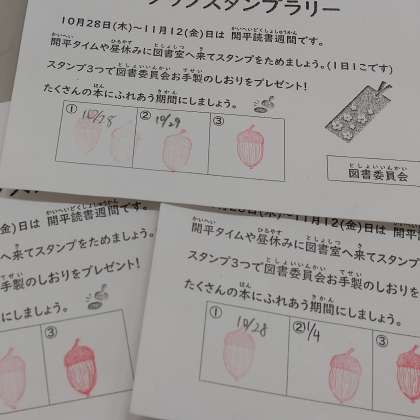 ブックスタンプラリー
10月28日(木)～11月12(金)日は 開平読書週間です。
開平タイムや昼休みに図書室へ来てスタンプをためましょう。(1日1こです)
スタンプ3つで図書委員会お手製のしおりをプレゼント!
たくさんの本にふれあう期間にしましょう。
① 10/28 ② 10/29 ③
図書委員会
(金)日は 開平読書週間です。
へ来てスタンプをためましょう。
お手製のしおりをプレゼント!
ましょう。
③
28日(木)～11月12(金)日は
開平タイムや昼休みに図書室へ来てスタン
スタンプ3つで図書委員会お手製のし
たくさんの本にふれあう期間にしましょう。
① 10/28 ② 1/4 ③